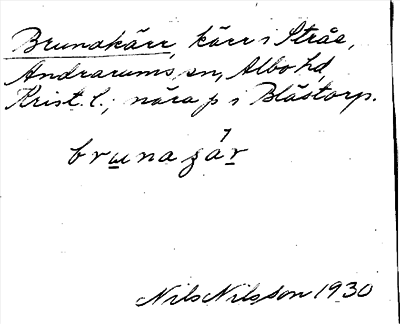 Brunakärr, kärr i Stråe,
Andrarums sn, Albo hd,
Krist. l.; nära p i Blåstorp.
brɯna ʂár
Nils Nilsson 1930